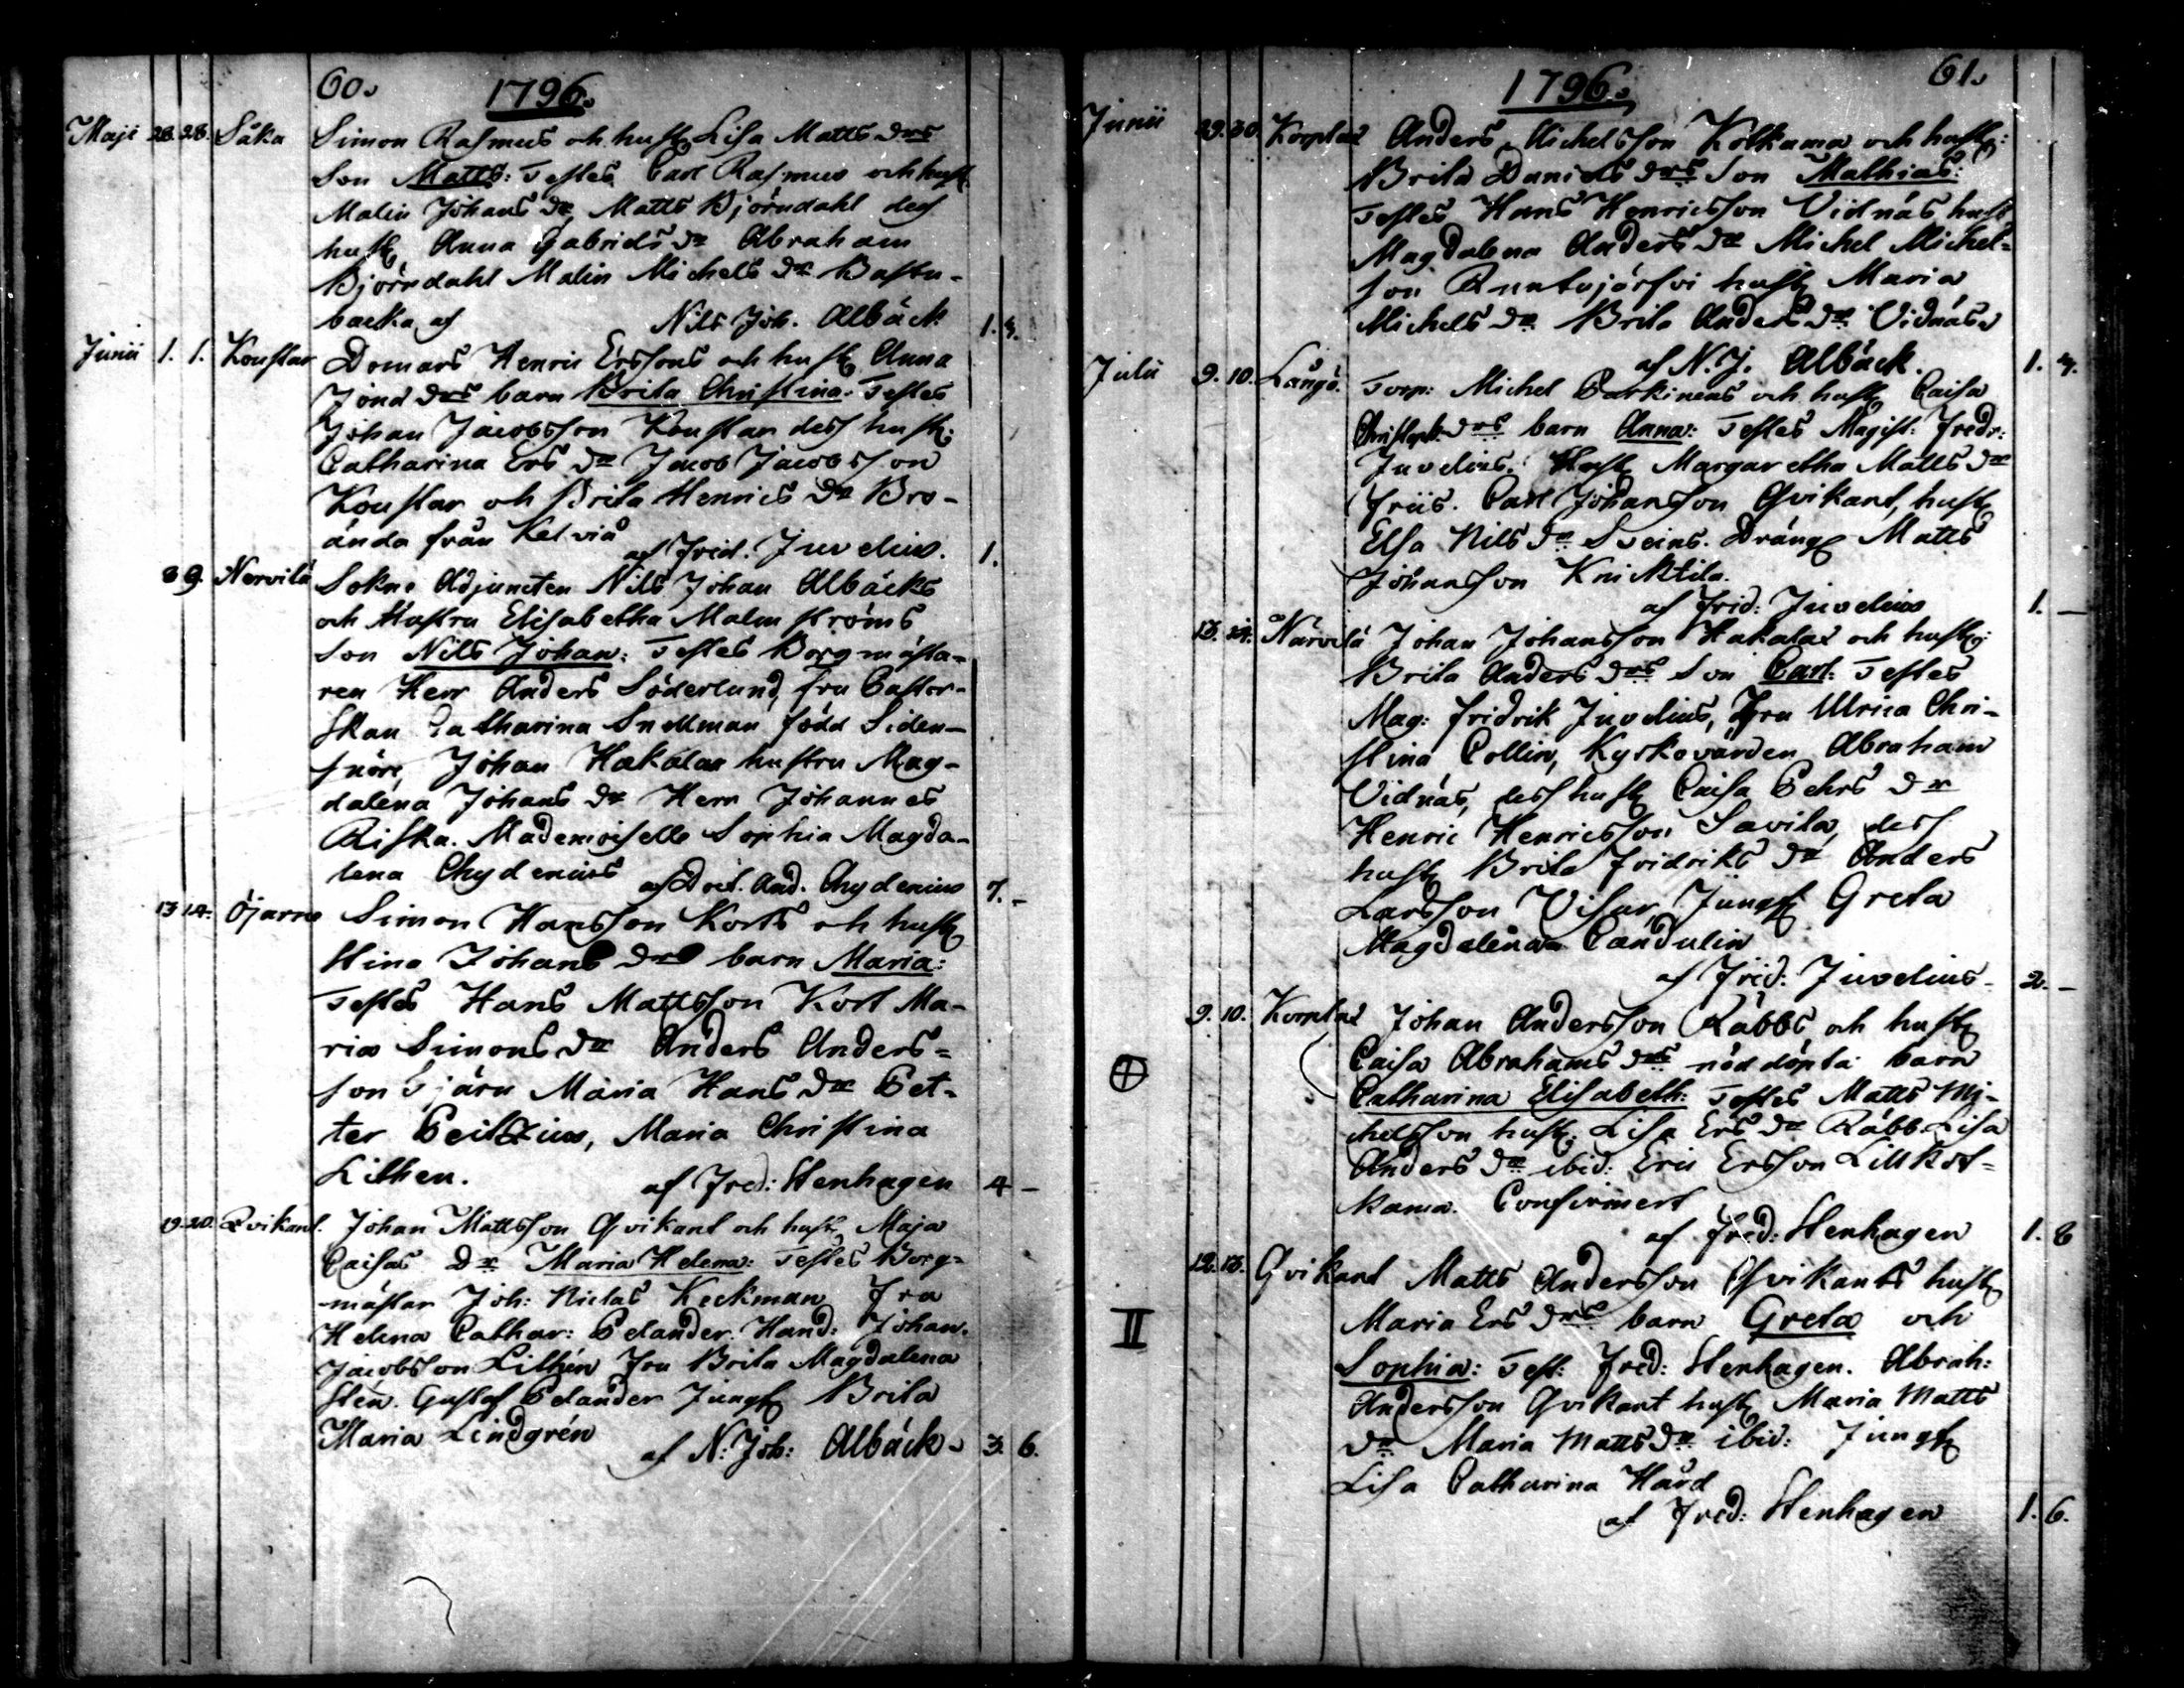 60. 1796.
Maji 28. 28. Såka Simon Rasmus och hust Lisa Matts drs
Son Matts: Testes Carl Rasmus och hust
Malin Johans dr, Matts Björndahl dess
hust Anna Gabriels dr Abraham
Björndahl Malin Michels dr Bastu-
backa af Nils Joh. Albäck 1. 4.
Junii 1. 1. Koustar Domars Henric Erssons och hust Anna
Jons drs barn Brita Christina: Testes
Johan Jacobsson Koustar dess hust:
Catharina Ers dr Jacob Jacobsson
Koustar och Brita Henrics dr Bro-
ända från Kelviå af Frid. Juvelius. 1.
8 9. Nervilä Sokne Adjuncten Nils Johan Albäcks
och Hustru Elisabetha Malmströms
Son Nils Johan: Testes Borgmästa-
ren Herr Anders Söderlund, fru Pastor-
skan Catharina Snellman född Siden-
snöre, Johan Hakalax hustru Mag-
dalena Johans dr Herr Johannes
Riska. Mademoiselle Sophia Magda-
lena Chydenius af Doct. And. Chydenius 7. -
13 14. Öjarne Simon Hansson Korts och hust
Stina Johans drs barn Maria:
Testes Hans Mattsson Kort Ma-
ria Simons dr Anders Anders=
son Öjärn Maria Hans dr Pet-
ter Peitzius, Maria Christina
Lithen. af Fred: Stenhagen 4 -
19. 20. Qvikant. Johan Mattsson Qvikant och hust Maja
Caisas Dr Maria Helena: Testes Borg=
mästar Joh: Niclas Keckman Fru
Helena Cathar: Pelander. Hand: Johan.
Jacobsson Lithén Fru Brita Magdalena
Sten. Gustaf Pelander Jungf Brita
Maria Lindgrén af N: Joh: Albäck. 3. 6.
1796. 61.
Junii 29. 30. Korplax Anders Michelsson Kolkama och hust:
Brita Daniels drs Son Mathias:
Testes Hans Henricsson Vidnäs hust
Magdalena Anders dr Michel Michel-
son hust Maria
Michels dr Brita Anders dr Vidnäs
af N. J. Albäck. 1. 4.
Julii 9. 10. Långö. Torp: Michel Parkinens och hust Caisa
Christoph. drs barn Anna: Testes Magist: Fredr:
Juvelius. Hust Margaretha Matts dr
Friis. Carl Johansson Qvikant, hust
Elsa Nils dr Sveins. Dräng Matts
Johansson Knicktila.
af Frid: Juvelius 1. -
13. 14. Narvilä Johan Johansson Hakalax och hust:
Brita Anders drs Son Carl: Testes
Mag: Fridrik Juvelius, Fru Ulrica Chri-
stina Collin, Kyrkovärden Abraham
Vidnäs, dess hust Caisa Pehrs dr
Henric Henricsson Savila, dess
hust Brita Fridriks dr Anders
Larsson Visur Jungf Greta
Magdalena Candulin
af Frid: Juvelius - 2. -
9. 10. Korplax Johan Andersson Räbbs och hust
Caisa Abrahams drs nöddöpta barn
Catharina Elisabeth: Testes Matts Mi-
chelsson hust: Lisa Ers dr Räbb. Lisa
Anders dr ibid: Eric Ersson Lillkol=
kama. Confirmert
af Fred: Stenhagen 1. 8
12. 13. Qvikant Matts Andersson Qvikants hust
II Maria Ers drs barn Greta och
Sophia: Test: Fred: Stenhagen. Abrah:
Andersson Qvikant hust Maria Matts
dr Maria Matts dr ibid: Jungf
Lisa Catharina Hård
af Fred: Stenhagen 1. 6.